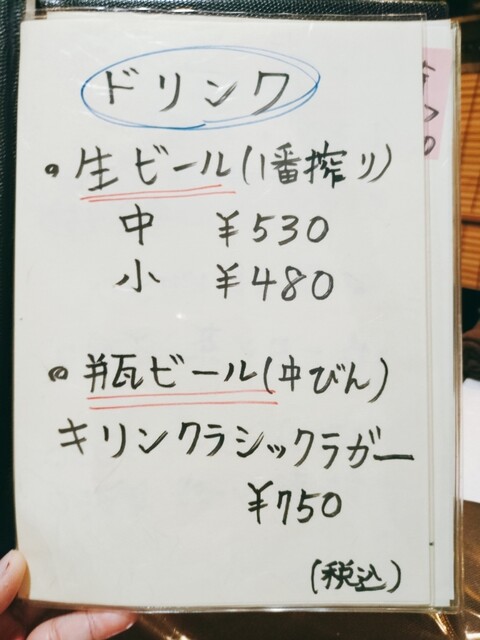 ドリンク
・生ビール(1番搾り)
中 ¥530
小 ¥480
・瓶ビール(中びん)
キリンクラシックラガー
¥750
(税込)